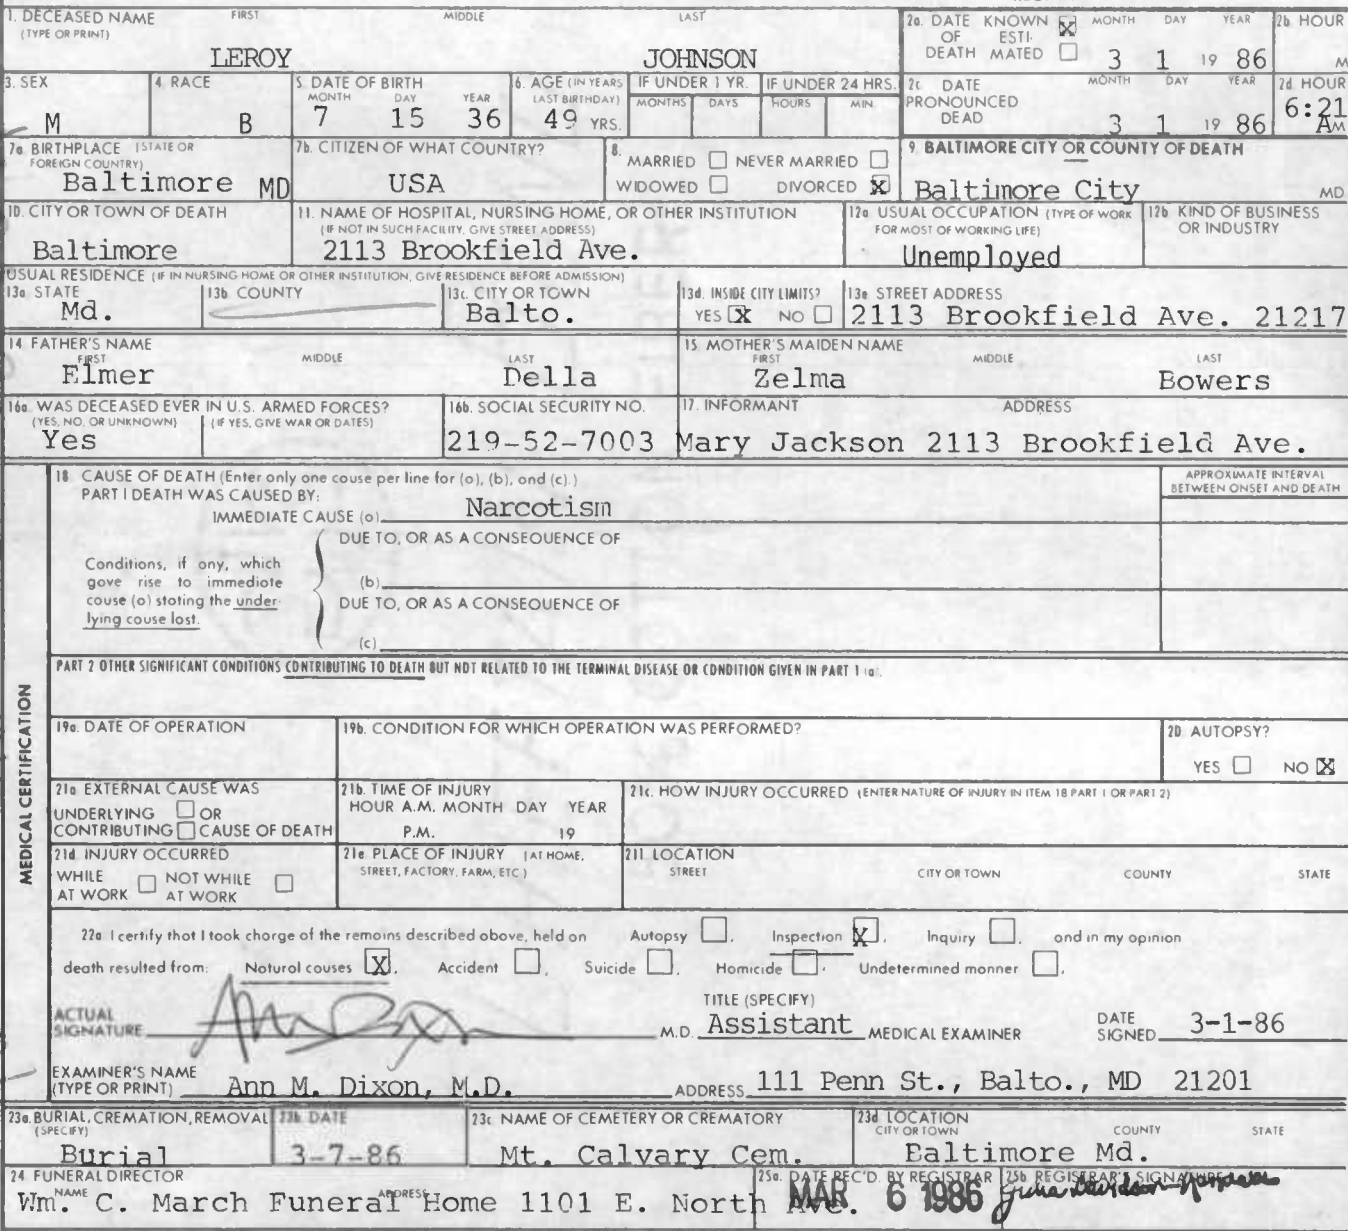 1. DECEASED NAME FIRST MIDDLE LAST
(TYPE OR PRINT)
LEROY JOHNSON
2a. DATE KNOWN ☒ MONTH DAY YEAR
OF ESTI-
DEATH MATED ☐ 3 1 19 86
2b HOUR
M
3. SEX
M
4. RACE
B
5. DATE OF BIRTH
MONTH DAY YEAR
7 15 36
6. AGE (IN YEARS
LAST BIRTHDAY)
49 YRS.
IF UNDER 1 YR.
MONTHS DAYS
IF UNDER 24 HRS.
HOURS MIN
2c DATE MONTH DAY YEAR
PRONOUNCED
DEAD 3 1 19 86
2d HOUR
6:21
AM
7a BIRTHPLACE (STATE OR
FOREIGN COUNTRY)
Baltimore MD
7b. CITIZEN OF WHAT COUNTRY?
USA
8.
MARRIED ☐ NEVER MARRIED ☐
WIDOWED ☐ DIVORCED ☒
9. BALTIMORE CITY OR COUNTY OF DEATH
Baltimore City MD
10. CITY OR TOWN OF DEATH
Baltimore
11. NAME OF HOSPITAL, NURSING HOME, OR OTHER INSTITUTION
(IF NOT IN SUCH FACILITY, GIVE STREET ADDRESS)
2113 Brookfield Ave.
12a USUAL OCCUPATION (TYPE OF WORK
FOR MOST OF WORKING LIFE)
Unemployed
12b KIND OF BUSINESS
OR INDUSTRY
USUAL RESIDENCE (IF IN NURSING HOME OR OTHER INSTITUTION, GIVE RESIDENCE BEFORE ADMISSION)
13a STATE
Md.
13b COUNTY
13c. CITY OR TOWN
Balto.
13d. INSIDE CITY LIMITS?
YES ☒ NO ☐
13e STREET ADDRESS
2113 Brookfield Ave. 21217
14 FATHER'S NAME
FIRST MIDDLE LAST
Elmer Della
15 MOTHER'S MAIDEN NAME
FIRST MIDDLE LAST
Zelma Bowers
16a WAS DECEASED EVER IN U.S. ARMED FORCES?
(YES, NO, OR UNKNOWN) (IF YES, GIVE WAR OR DATES)
Yes
16b. SOCIAL SECURITY NO.
219-52-7003
17. INFORMANT ADDRESS
Mary Jackson 2113 Brookfield Ave.
MEDICAL CERTIFICATION
18 CAUSE OF DEATH (Enter only one cause per line for (a), (b), and (c).)
PART I DEATH WAS CAUSED BY:
IMMEDIATE CAUSE (a) Narcotism
APPROXIMATE INTERVAL
BETWEEN ONSET AND DEATH
DUE TO, OR AS A CONSEQUENCE OF
Conditions, if any, which
gave rise to immediate
cause (a) stating the under-
lying cause last.
(b)
DUE TO, OR AS A CONSEQUENCE OF
(c)
PART 2 OTHER SIGNIFICANT CONDITIONS CONTRIBUTING TO DEATH BUT NOT RELATED TO THE TERMINAL DISEASE OR CONDITION GIVEN IN PART 1 (a).
19a. DATE OF OPERATION
19b. CONDITION FOR WHICH OPERATION WAS PERFORMED?
20 AUTOPSY?
YES ☐ NO ☒
21a EXTERNAL CAUSE WAS
UNDERLYING ☐ OR
CONTRIBUTING ☐ CAUSE OF DEATH
21b. TIME OF INJURY
HOUR A.M. MONTH DAY YEAR
P.M. 19
21c. HOW INJURY OCCURRED (ENTER NATURE OF INJURY IN ITEM 18 PART 1 OR PART 2)
21d INJURY OCCURRED
WHILE ☐ NOT WHILE ☐
AT WORK AT WORK
21e PLACE OF INJURY (AT HOME,
STREET, FACTORY, FARM, ETC)
21f LOCATION
STREET CITY OR TOWN COUNTY STATE
22a I certify that I took charge of the remains described above, held on Autopsy ☐, Inspection ☒, Inquiry ☐, and in my opinion
death resulted from: Natural causes ☒, Accident ☐, Suicide ☐, Homicide ☐, Undetermined manner ☐.
TITLE (SPECIFY)
ACTUAL
SIGNATURE Ann Dixon M.D. Assistant MEDICAL EXAMINER
DATE
SIGNED 3-1-86
EXAMINER'S NAME
(TYPE OR PRINT) Ann M. Dixon, M.D. ADDRESS 111 Penn St., Balto., MD 21201
23a. BURIAL, CREMATION, REMOVAL
(SPECIFY)
Burial
23b DATE
3-7-86
23c NAME OF CEMETERY OR CREMATORY
Mt. Calvary Cem.
23d LOCATION
CITY OR TOWN COUNTY STATE
Baltimore Md.
24 FUNERAL DIRECTOR
NAME ADDRESS
Wm. C. March Funeral Home 1101 E. North Ave.
25a. DATE REC'D. BY REGISTRAR
MAR 6 1986
25b REGISTRAR'S SIGNATURE